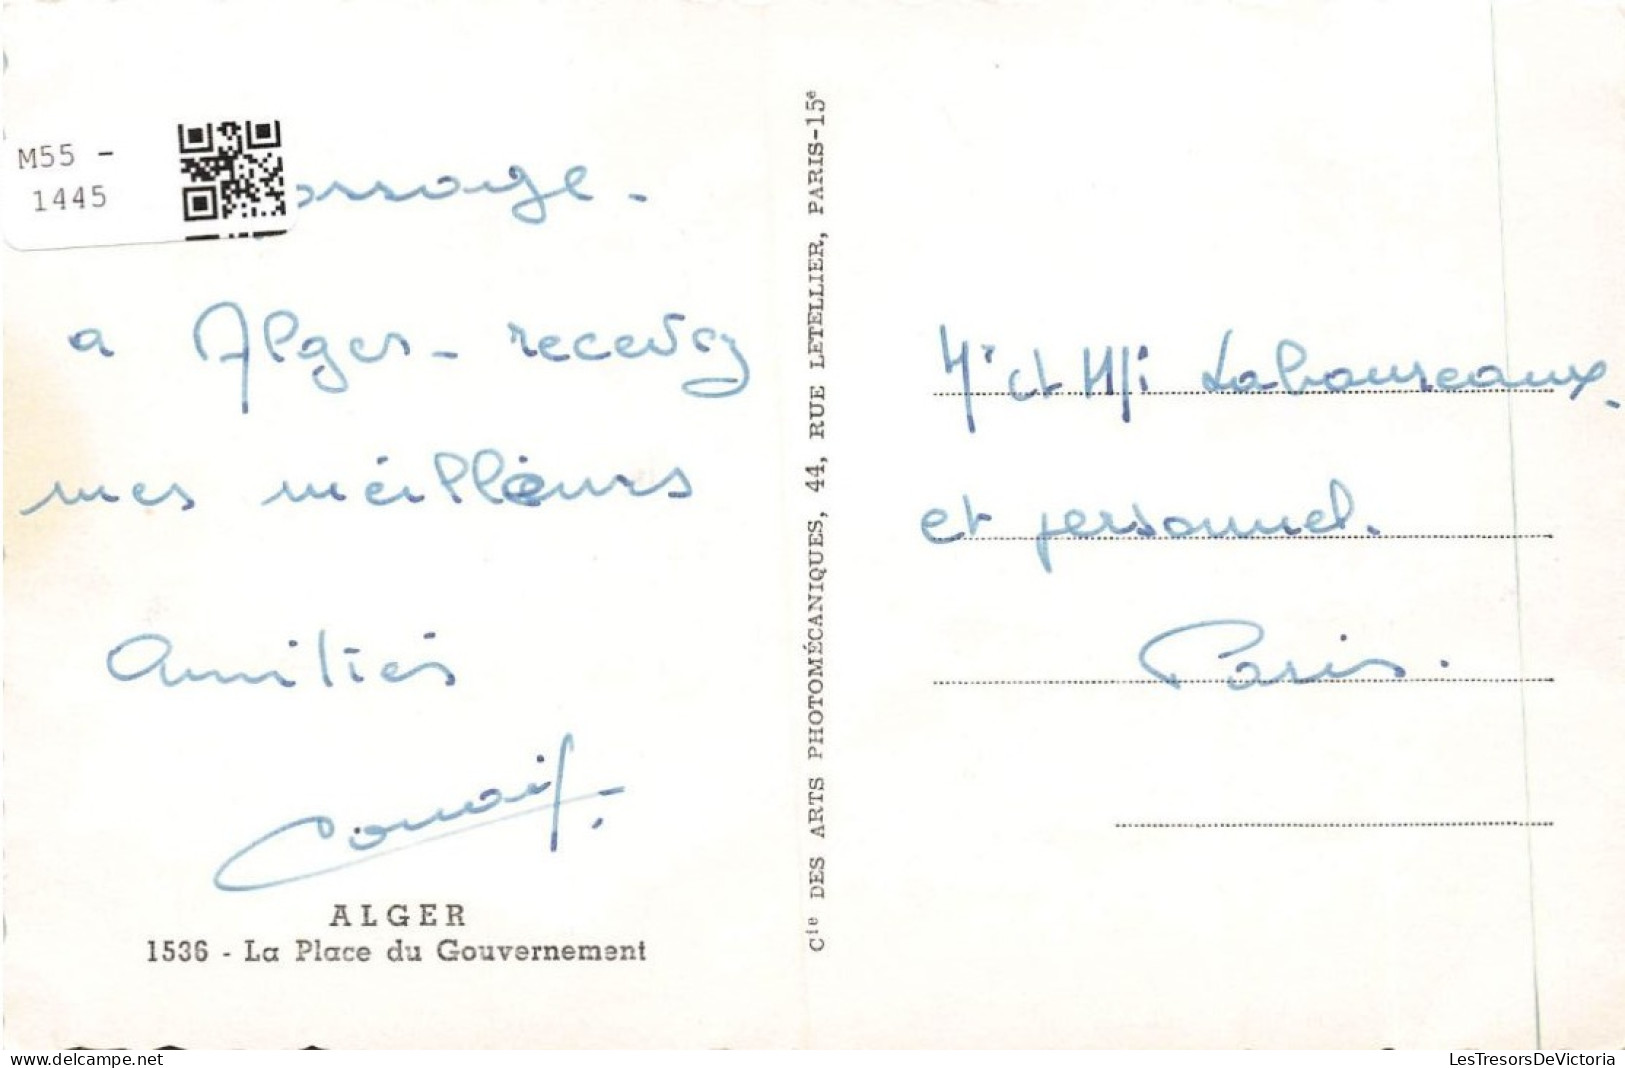 M55 -
1445
a Alger - recevez
mes meilleurs
Amitiés
ALGER
1536 - La Place du Gouvernement
Cie DES ARTS PHOTOMÉCANIQUES, 44, RUE LETELLIER, PARIS-15e
et
et personnel.
Paris.
LesTresorsDeVictoria